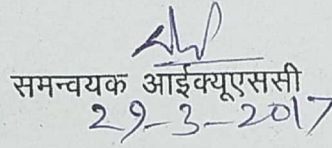 समन्वयक आईक्यूएससी
29-3-2017